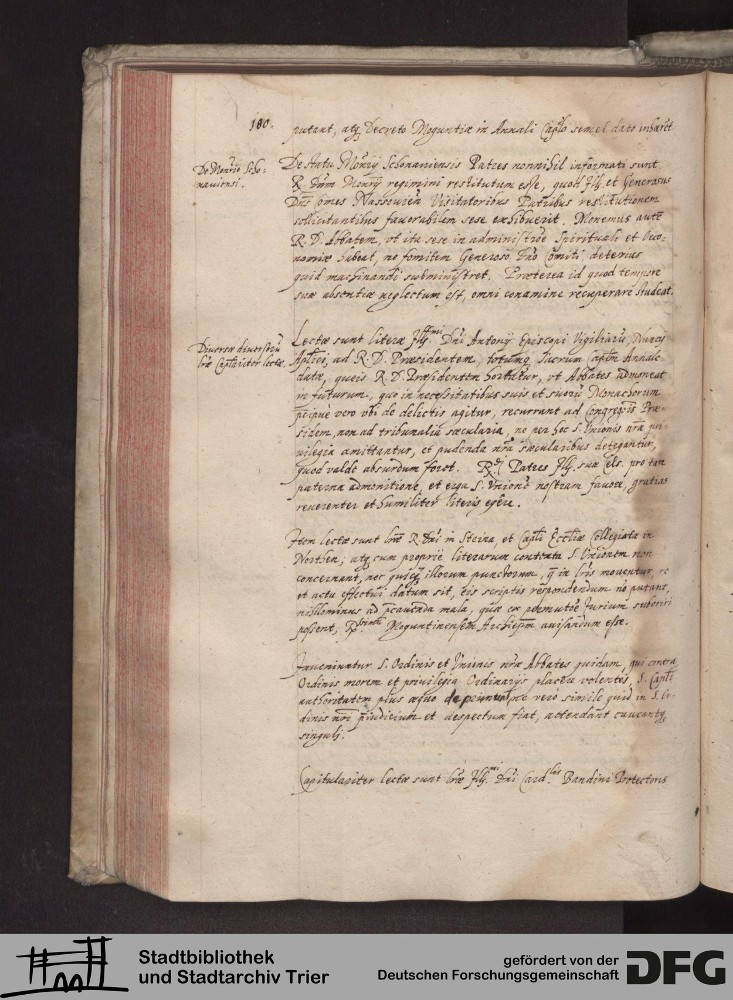 180.
putant, atq; Decreto Moguntiæ in Annali Caplo semel dato inhæret
De Monrio Scho-
naviensi.
De statu Monrij Schonaviensis Patres nonnihil informati sunt
R. Dnm Monrij regimini restitutum esse, quodq; Ill. et Generosus
Dns Comes Nassoviæ Visitatoribus Patribus restitutionem
sollicitantibus favorabilem sese exhibuerit. Monemus autē
R. D. Abbatem, vt ita sese in administrōe Spirituali et Oico-
nomiæ habeat, ne fomitem Generoso Dno Comiti deterius
quid machinandi subministret. Præterea id quod tempore
suæ absentiæ neglectum est, omni conamine recuperare studeat.
Diversæ diversorū
lræ Capłariter lectæ.
Lectæ sunt literæ Ill.mi Dni Antonij Episcopi Vigiliarū, Nuncij
Aplici, ad R. D. Præsidentem, totumq; sacrum Caplm Annale
datæ, queis R. D. Præsidentem hortatur, vt Abbates admoneat
in futurum, quo in necessitatibus suis et suorū Monachorum
pcipuè vero vbi de delictis agitur, recurrant ad Congregōis Præ-
sidem, non ad tribunalia sæcularia, ne per hoc S. Vnionis nræ pri-
vilegia amittantur, et pudenda nra sæcularibus detegantur,
quod valdè absurdum foret. Rdi Patres Ill. suæ Cels. pro tam
paterna admonitione, et erga S. Vnionē nostram favore, gratias
reverenter et humiliter literis egere.
Item lectæ sunt lræ R. Dni in Steina, et Capli Eccliæ Collegiatæ in
Northen; atq; cum propriè literarum contenta S. Vnionem non
concernant, nec quicq; illorum punctorum, q̄ in lris moventur, re
et actu effectui datum sit, eis scriptis respondendum nō putant,
nihilominus ad pcavenda mala, quæ ex permutōe Iurium suboriri
possent, Rssimū Moguntinensem Archiepm avisandum esse.
Inveniuntur S. Ordinis et Vnionis nræ Abbates quidam, qui contra
Ordinis morem et privilegia Ordinarijs placere volentes, S. Capli
authoritatem plus æquo deprimunt, ne verò simile quid in S. Or-
dinis nri pjudicium et despectum fiat, attendant caveantq;
singuli.
Capitulariter lectæ sunt lræ Ill.mi Dni Card.lis Bandini Protectoris
Stadtbibliothek
und Stadtarchiv Trier
gefördert von der
Deutschen Forschungsgemeinschaft
DFG